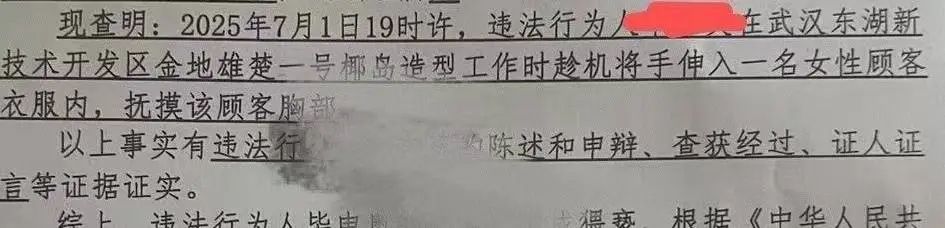 现查明：2025年7月1日19时许，违法行为人在武汉东湖新
技术开发区金地雄楚一号椰岛造型工作时趁机将手伸入一名女性顾客
衣服内，抚摸该顾客胸部
以上事实有违法行的陈述和申辩、查获经过、证人证
言等证据证实。
综上，违法行为人 猥亵，根据《中华人民共